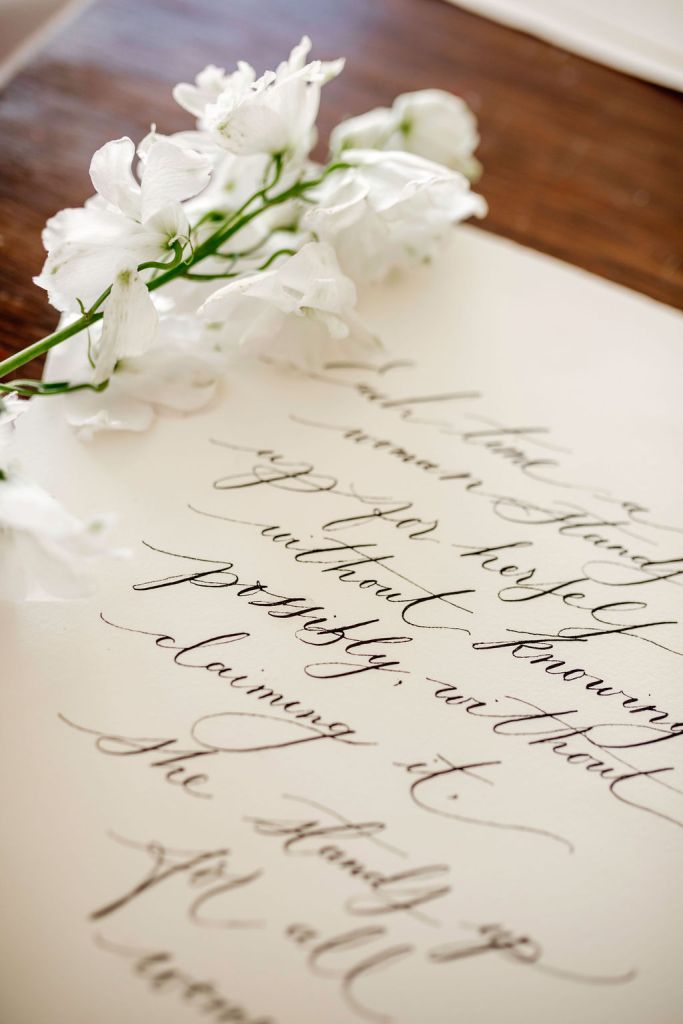 Each time a
woman stands
up for herself
without knowing
possibly, without
claiming it.
she stands up
for all
women